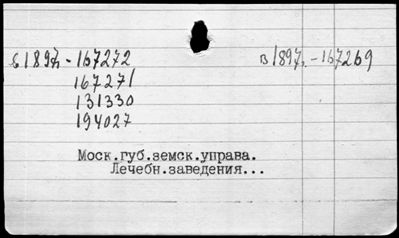 в 1897г. - 167272 в 1897г. - 167269
167271
131330
194027
Моск.губ.земск.управа.
Лечебн.заведения...